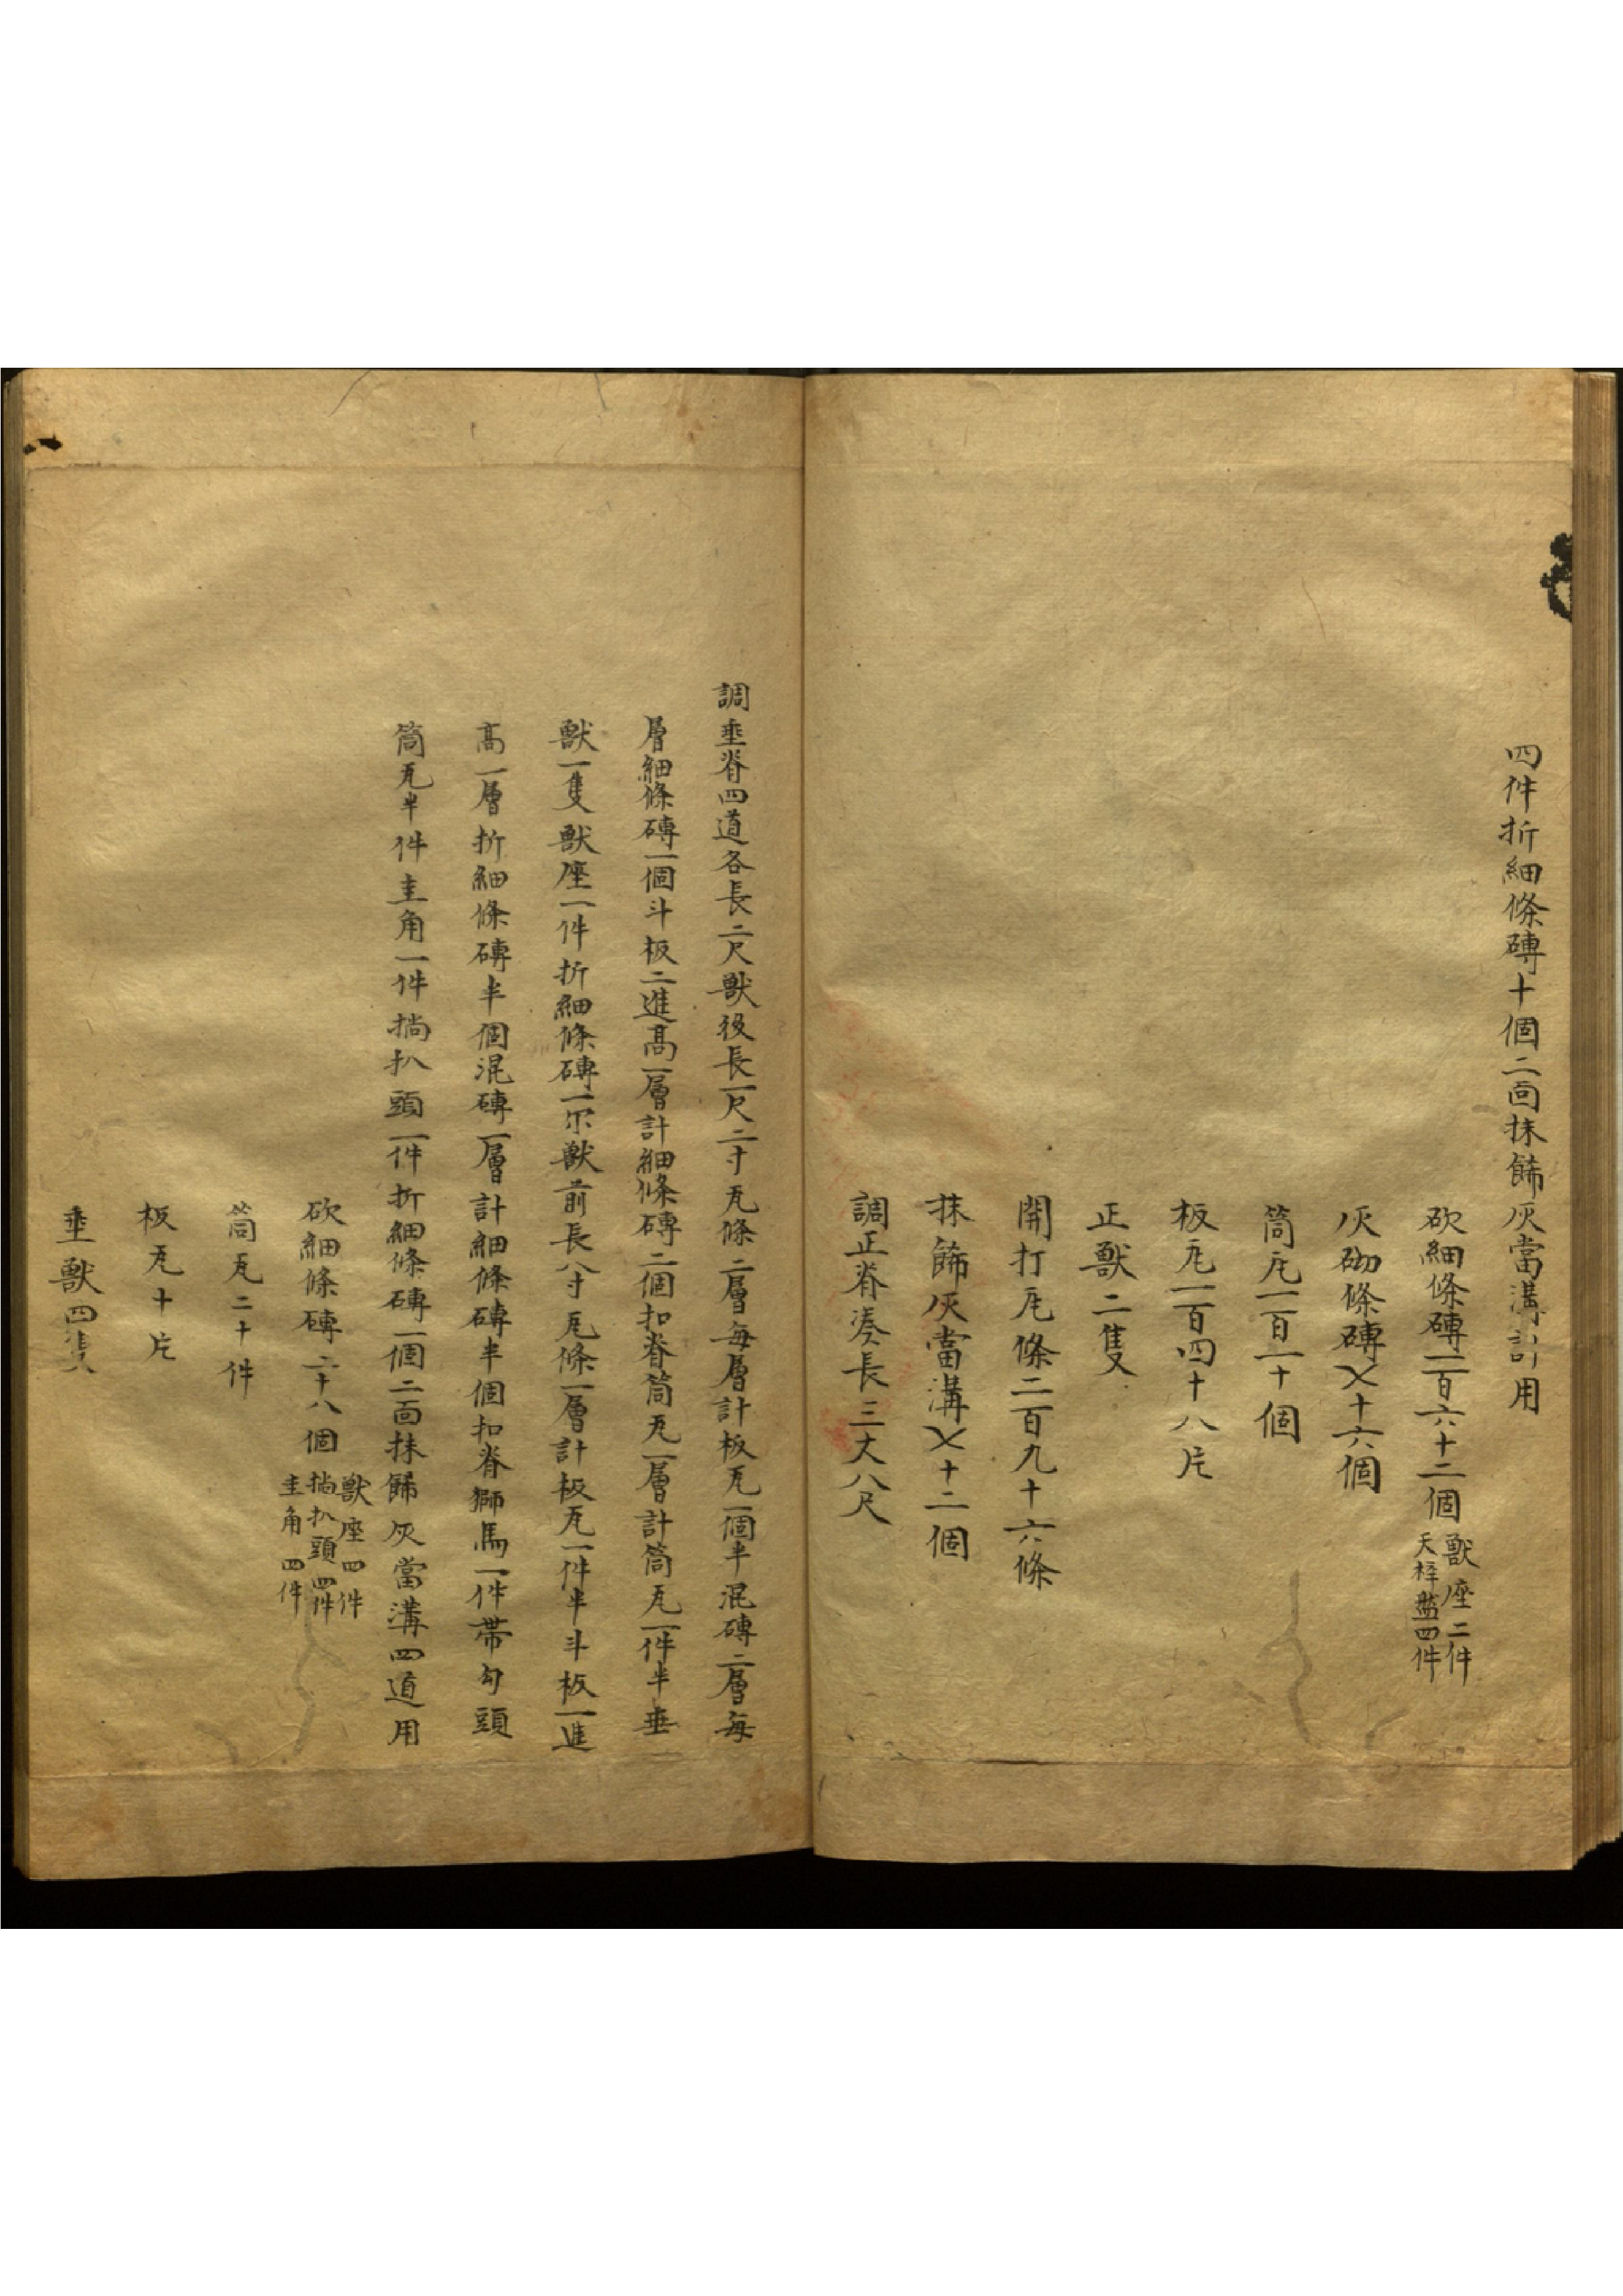 四件折細條磚十個二面抹餙灰當溝計用
砍細條磚一百六十二個
獸座二件
天梓盤四件
灰砌條磚㐅十六個
筒瓦一百一十個
板瓦一百四十八片
正獸二隻
開打瓦條二百九十六條
抹餙灰當溝㐅十二個
調正脊湊長三丈八尺
調垂脊四道各長二尺獸後長一尺二寸瓦條二層每層計板瓦一個半混磚二層每
層細條磚一個斗板二進高一層計細條磚二個扣脊筒瓦一層計筒瓦一件半垂
獸一隻獸座一件折細條磚一尔獸前長八寸瓦條一層計板瓦一件半斗板一進
高一層折細條磚半個混磚一層計細條磚半個扣脊獅馬一件帶勾頭
筒瓦半件圭角一件揣扒頭一件折細條磚一個二面抹餙灰當溝四道用
砍細條磚二十八個
獸座四件
揣扒頭四件
圭角四件
筒瓦二十件
板瓦十片
垂獸四隻